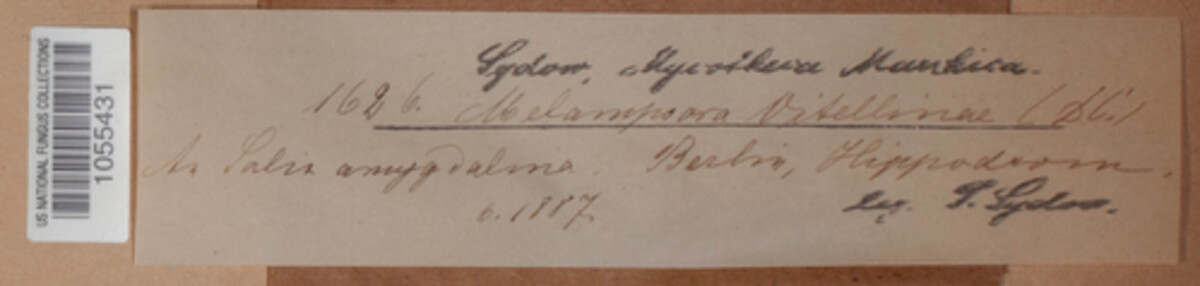 US NATIONAL FUNGUS COLLECTIONS
1055431
Sydow, Mycotheca Marchica.
1626. Melampsora Vitellinae (DC.)
An Salix amygdalina. Berlin, Hippodrom.
6.1887
leg. P. Sydow.